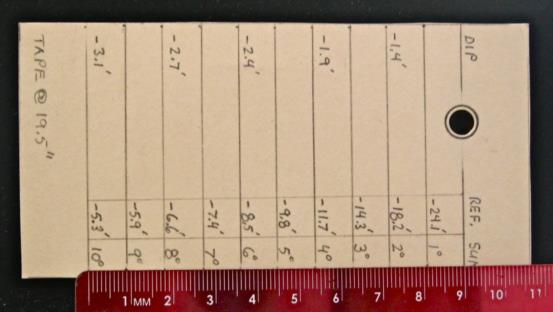 DIP REF. SUN
-24.1' 1°
-1.4' -18.2' 2°
-14.3' 3°
-1.9' -11.7' 4°
-9.8' 5°
-2.4' -8.5' 6°
-7.4' 7°
-2.7' -6.6' 8°
-5.9' 9°
-3.1' -5.3' 10°
TAPE @ 19.5"
1 MM 2 3 4 5 6 7 8 9 10 11